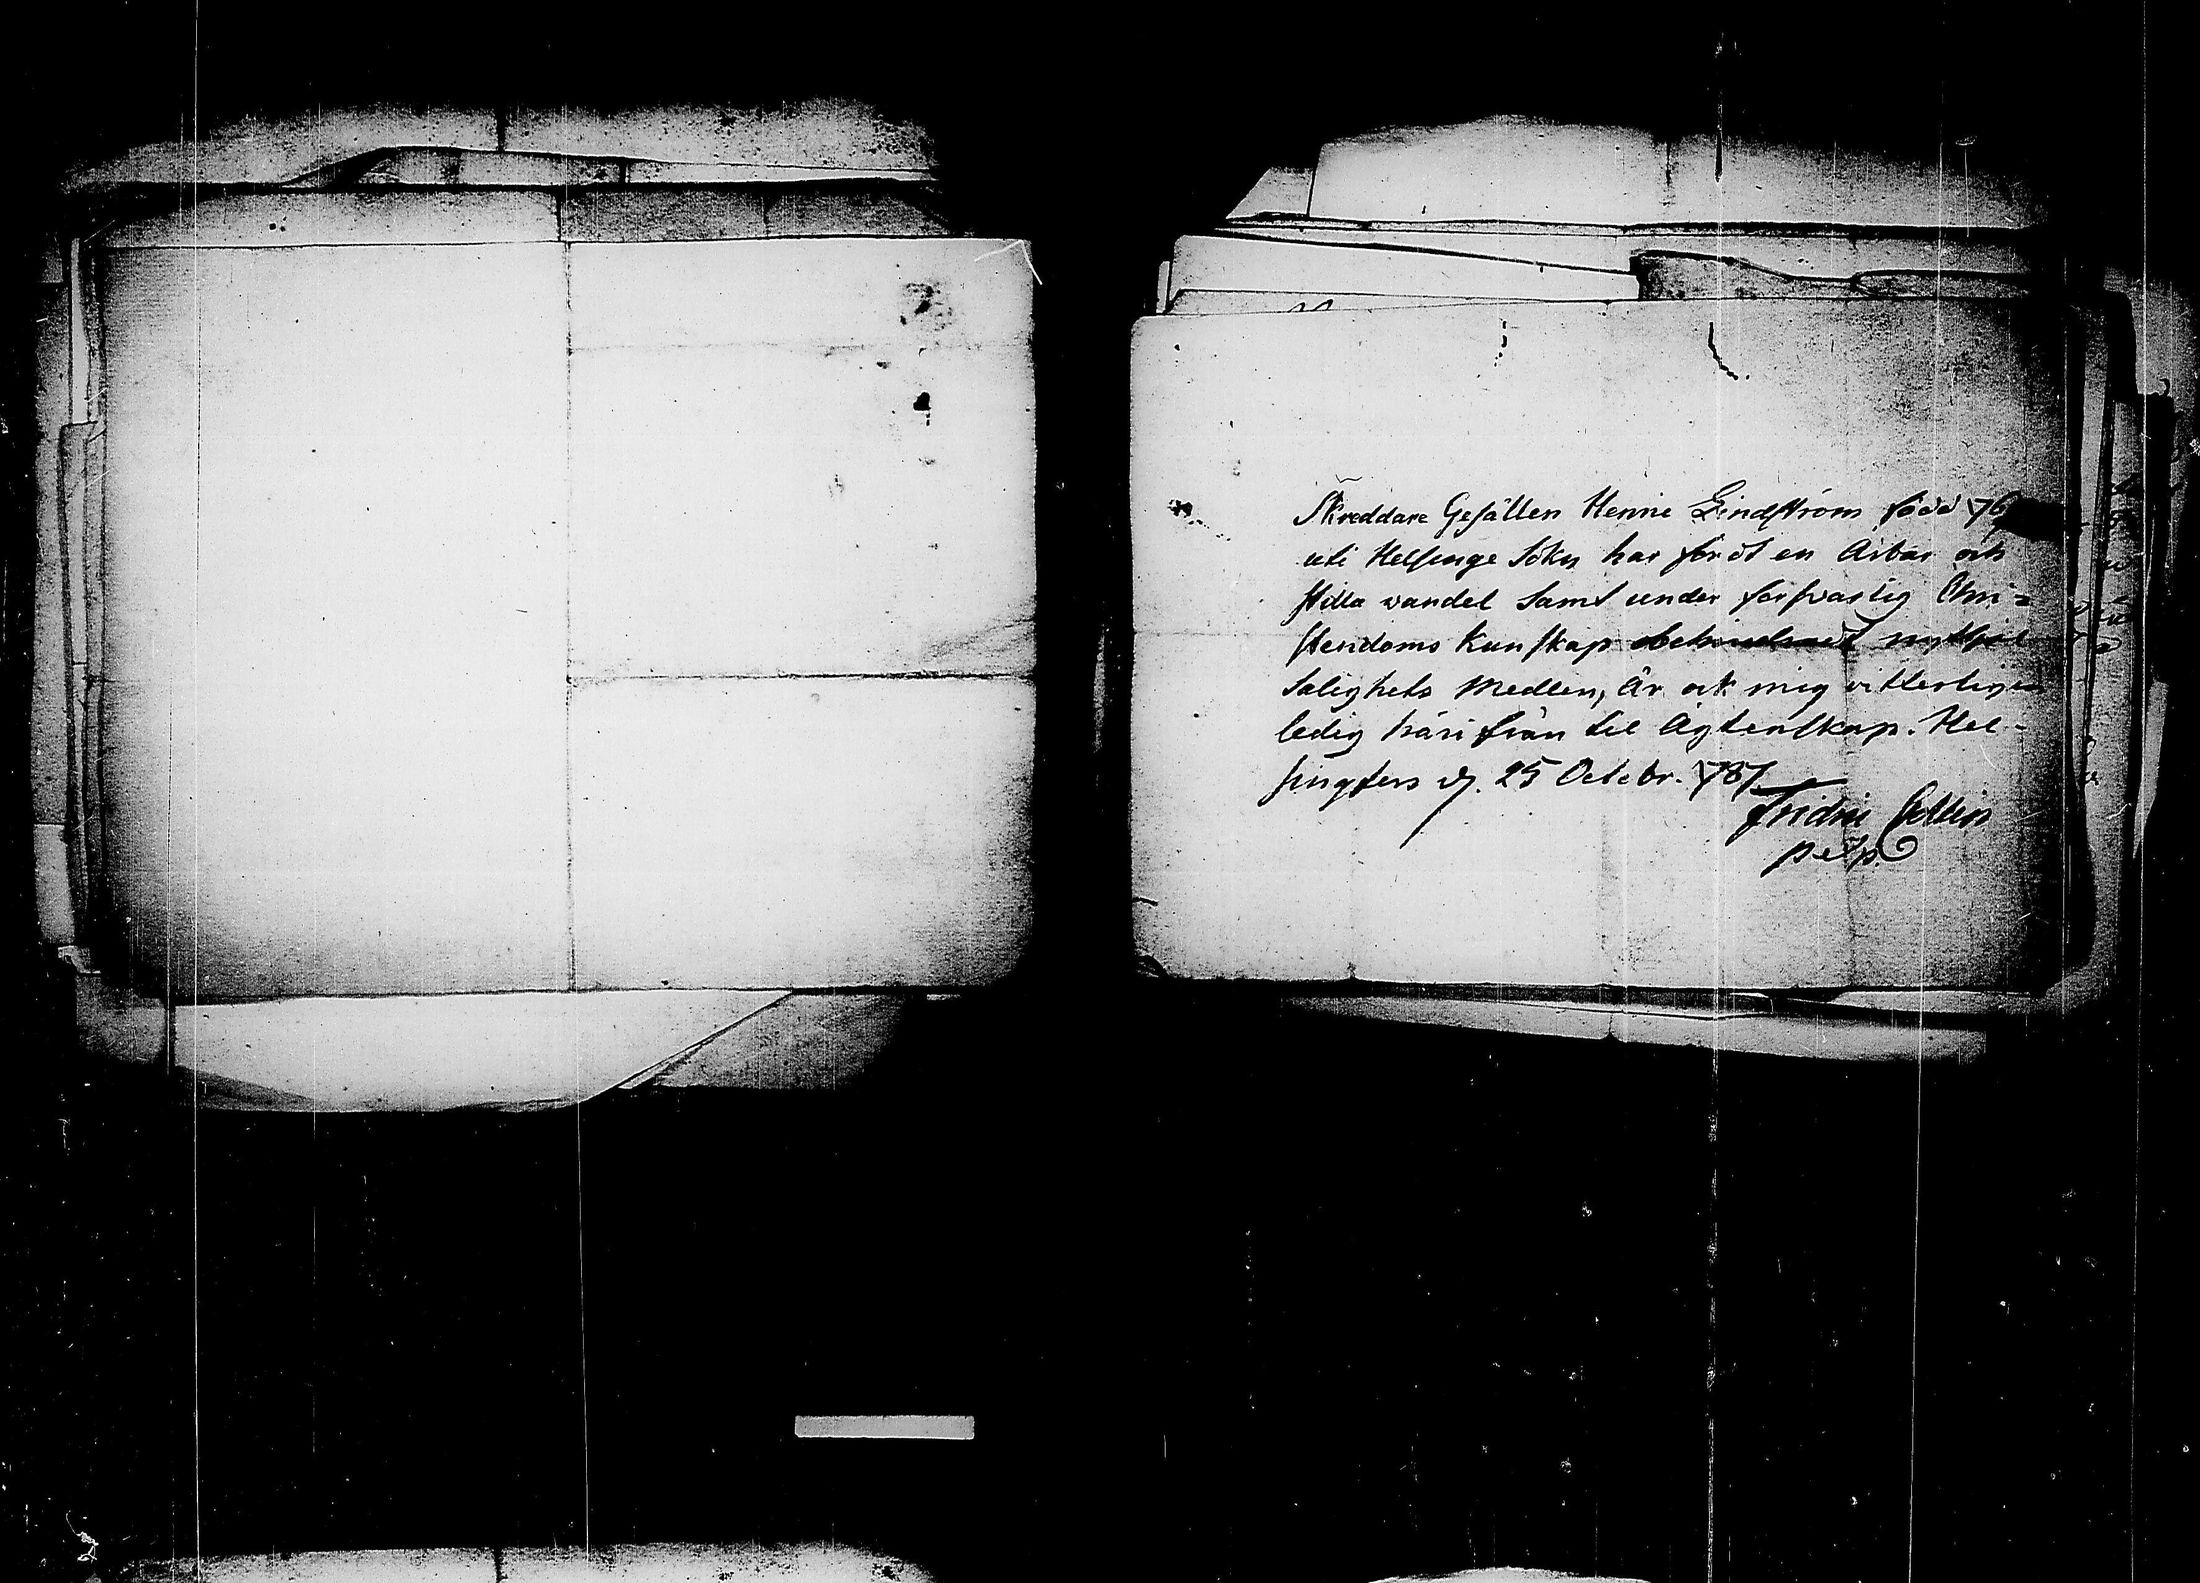 Skreddare Gesällen Henric Lindström född 76
uti Helsinge Sokn har fördt en Ärbar och
stilla vandel samt under försvarlig Chri=
stendoms kunskap obehindrad nyttjat
Salighets Medlen, Är ock mig vitterligen
ledig härifrån til Ägtenskap. Hel-
singfors d. 25 Octobr. 1787.
Fridric Collin